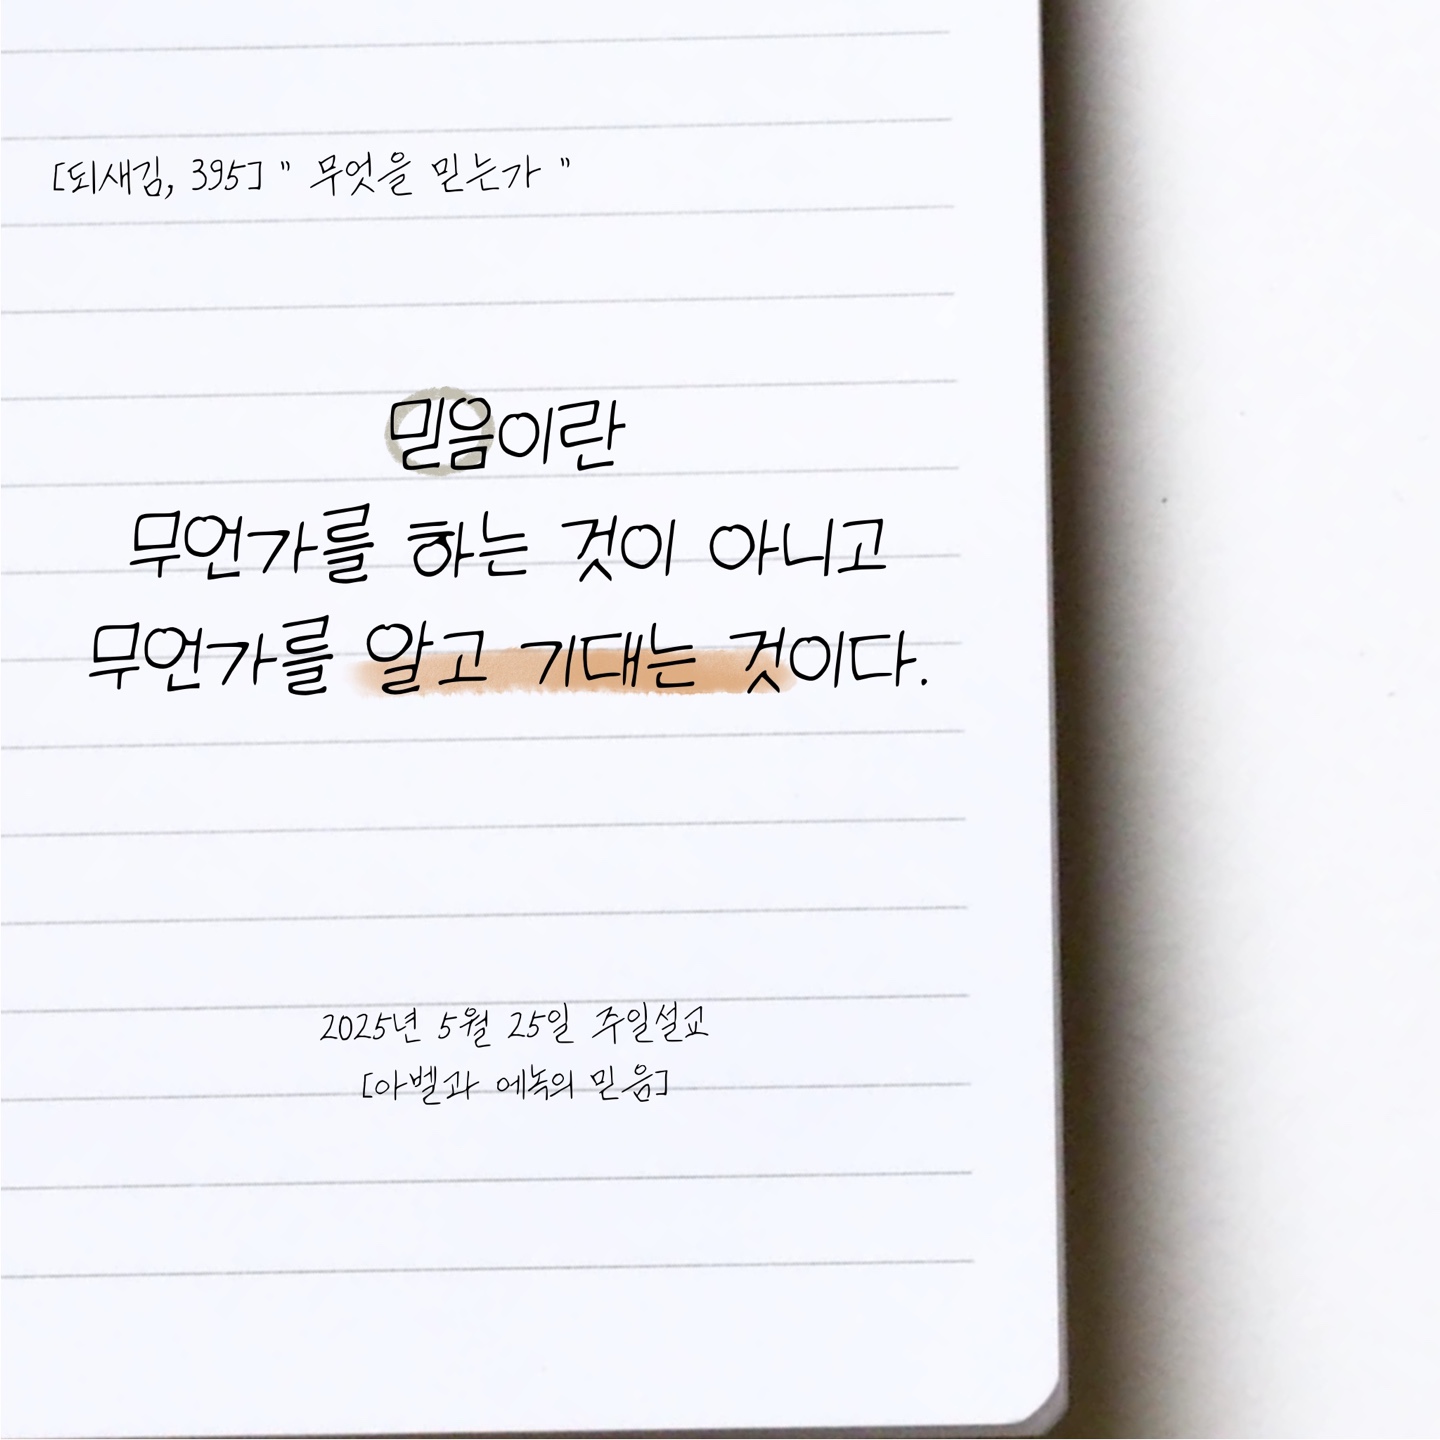 [되새김, 395] " 무엇을 믿는가 "
믿음이란
무언가를 하는 것이 아니고
무언가를 알고 기대는 것이다.
2025년 5월 25일 주일설교
[아벨과 에녹의 믿음]